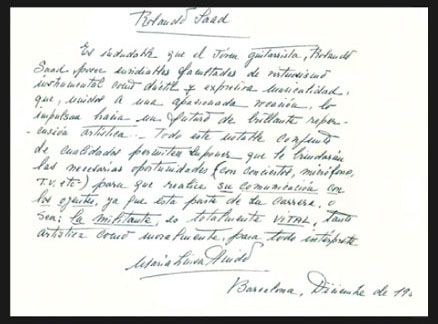 Rolando Saad
Es indudable que el joven guitarrista, Rolando
Saad, posee envidiables facultades de virtuosismo
instrumental como dúctil y expresiva musicalidad,
que, unidos a una apasionada vocación, lo
impulsan hacia un futuro de brillante reper-
cusión artística. - Todo este notable conjunto
de cualidades permiten suponer que le brindarán
las necesarias oportunidades (con conciertos, micrófono,
T.V. etc-) para que realice su comunicación con
los oyentes, ya que esta parte de su carrera, o
sea: la militante, es totalmente VITAL, tanto
artística como moralmente, para todo intérprete
María Luisa Anido
Barcelona, Diciembre de 19